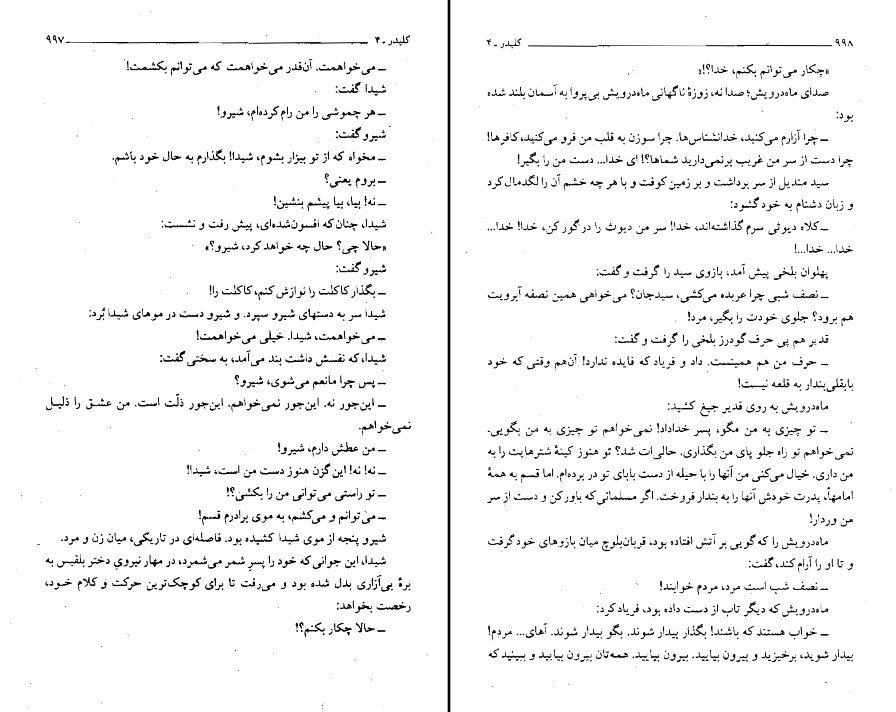 کلیدر ـ ۴ ۹۹۷
ـ می‌خواهمت. آن‌قدر می‌خواهمت که می‌توانم بکشمت!
شیدا گفت:
ـ هر چموشی را من رام کرده‌ام، شیرو!
شیرو گفت:
ـ مخواه که از تو بیزار بشوم، شیدا! بگذارم به حال خود باشم.
ـ بروم یعنی؟
ـ نه! بیا، بیا پیشم بنشین!
شیدا، چنان‌که افسون‌شده‌ای، پیش رفت و نشست:
«حالا چی؟ حال چه خواهد کرد، شیرو؟»
شیرو گفت:
ـ بگذار کاکلت را نوازش کنم، کاکلت را!
شیدا سر به دستهای شیرو سپرد. و شیرو دست در موهای شیدا بُرد:
ـ می‌خواهمت، شیدا. خیلی می‌خواهمت!
شیدا، که نفسش داشت بند می‌آمد، به سختی گفت:
ـ پس چرا مانعم می‌شوی، شیرو؟
ـ این‌جور نه. این‌جور نمی‌خواهم. این‌جور ذلّت است. من عشق را ذلیل
نمی‌خواهم.
ـ من عطش دارم، شیرو!
ـ نه! نه! این گزن هنوز دست من است، شیدا!
ـ تو راستی می‌توانی من را بکشی؟!
ـ می‌توانم و می‌کشم، به موی برادرم قسم!
شیرو پنجه از موی شیدا کشیده بود. فاصله‌ای در تاریکی، میان زن و مرد.
شیدا، این جوانی که خود را پسرِ شمر می‌شمرد، در مهار نیرویِ دختر بلقیس به
برهٔ بی‌آزاری بدل شده بود و می‌رفت تا برای کوچک‌ترین حرکت و کلام خود،
رخصت بخواهد:
ـ حالا چکار بکنم؟!
۹۹۸ کلیدر ـ ۴
«چکار می‌توانم بکنم، خدا؟!»
صدای ماه‌درویش؛ صدا نه، زوزهٔ ناگهانی ماه‌درویش بی‌پروا به آسمان بلند شده
بود:
ـ چرا آزارم می‌کنید، خدانشناس‌ها. چرا سوزن به قلب من فرو می‌کنید، کافرها!
چرا دست از سر من غریب برنمی‌دارید شماها؟! ای خدا... دست من را بگیر!
سید مندیل از سر برداشت و بر زمین کوفت و با هر چه خشم آن را لگدمال کرد
و زبان دشنام به خود گشود:
ـ کلاه دیوثی سرم گذاشته‌اند، خدا! سر من دیوث را در گور کن، خدا! خدا...
خدا... خدا...!
پهلوان بلخی پیش آمد، بازوی سید را گرفت و گفت:
ـ نصف شبی چرا عربده می‌کشی، سیدجان؟ می‌خواهی همین نصفه آبرویت
هم برود؟ جلوی خودت را بگیر، مرد!
قدیر هم پی حرف گودرز بلخی را گرفت و گفت:
ـ حرف من هم همینست. داد و فریاد که فایده ندارد! آن‌هم وقتی که خود
بابقلی‌بندار به قلعه نیست!
ماه‌درویش به روی قدیر جیغ کشید:
ـ تو چیزی به من مگو، پسر خداداد! نمی‌خواهم تو چیزی به من بگویی.
نمی‌خواهم تو راه جلو پای من بگذاری. حالی‌ات شد؟ تو هنوز کینهٔ شترهایت را به
من داری. خیال می‌کنی من آنها را با حیله از دست بابای تو در برده‌ام. اما قسم به همهٔ
امامها، پدرت خودش آنها را به بندار فروخت. اگر مسلمانی که باور کن و دست از سر
من وردار!
ماه‌درویش را که گویی بر آتش افتاده بود، قربان‌بلوچ میان بازوهای خود گرفت
و تا او را آرام کند، گفت:
ـ نصف شب است مرد، مردم خوابند!
ماه‌درویش که دیگر تاب از دست داده بود، فریاد کرد:
ـ خواب هستند که باشند! بگذار بیدار شوند. بگو بیدار شوند. آهای... مردم!
بیدار شوید، برخیزید و بیرون بیایید. بیرون بیایید. همه‌تان بیرون بیایید و ببینید که